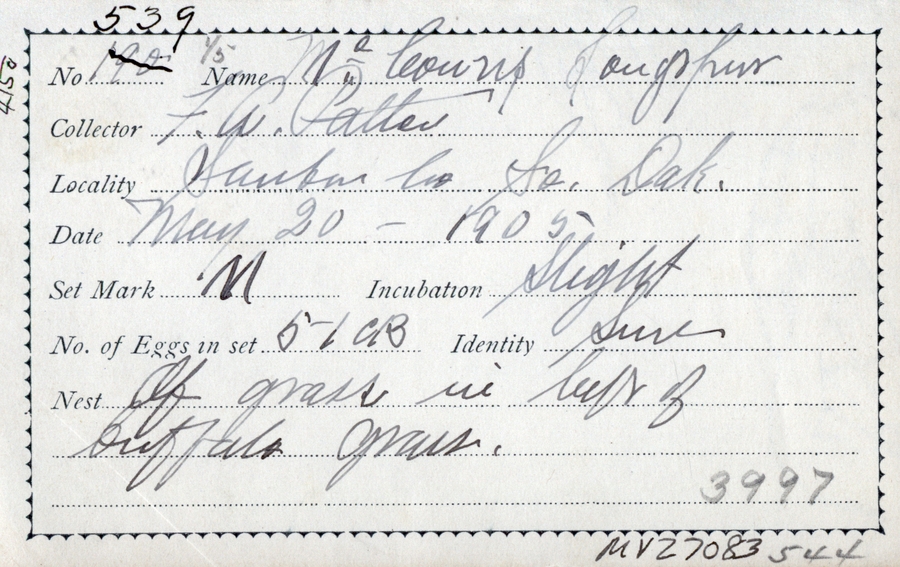 539
No. 1/5 Name McCown's Longspur
Collector F. A. Patton
Locality Sanborn Co So. Dak.
Date May 20 – 1905
Set Mark M Incubation Slight
No. of Eggs in set 5-1 CB Identity Sure
Nest Of grass in tuft of
buffalo grass.
3997
MVZ7083 544